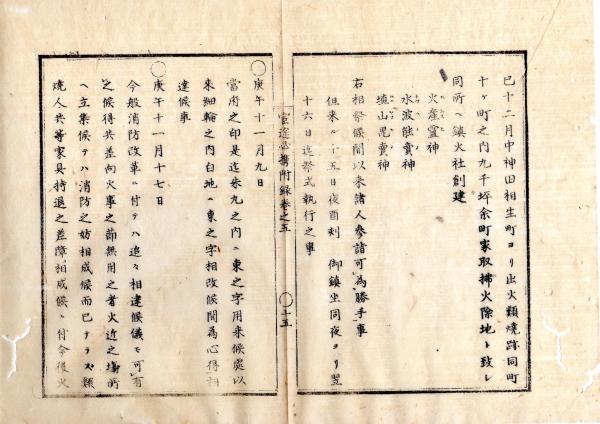 巳十二月中神田相生町ヨリ出火類焼跡同町
十ヶ町之内九千坪余町家取拂火除地ト致シ
同所ヘ鎮火社創建
火産霊神
水波能賣神
埴山毘賣神
右相祭候間以来諸人参詣可為勝手事
但来ル十五日夜酉刻 御鎮坐同夜ヨリ翌
十六日迄祭式執行之事
官途必携附録巻之五
十五
○庚午十一月九日
當府之印是迄朱丸之内ニ東之字用来候處以
来細輪之内白地ニ東之字相改候間為心得相
達候事
○庚午十一月十七日
今般消防改革ニ付テハ追々相達候儀モ可有
之候得共差向火事之節無用之者火近之場所
ヘ立集候テハ消防之妨相成候而已ナラス類
焼人共等家具持退之差障相成候ニ付今後火